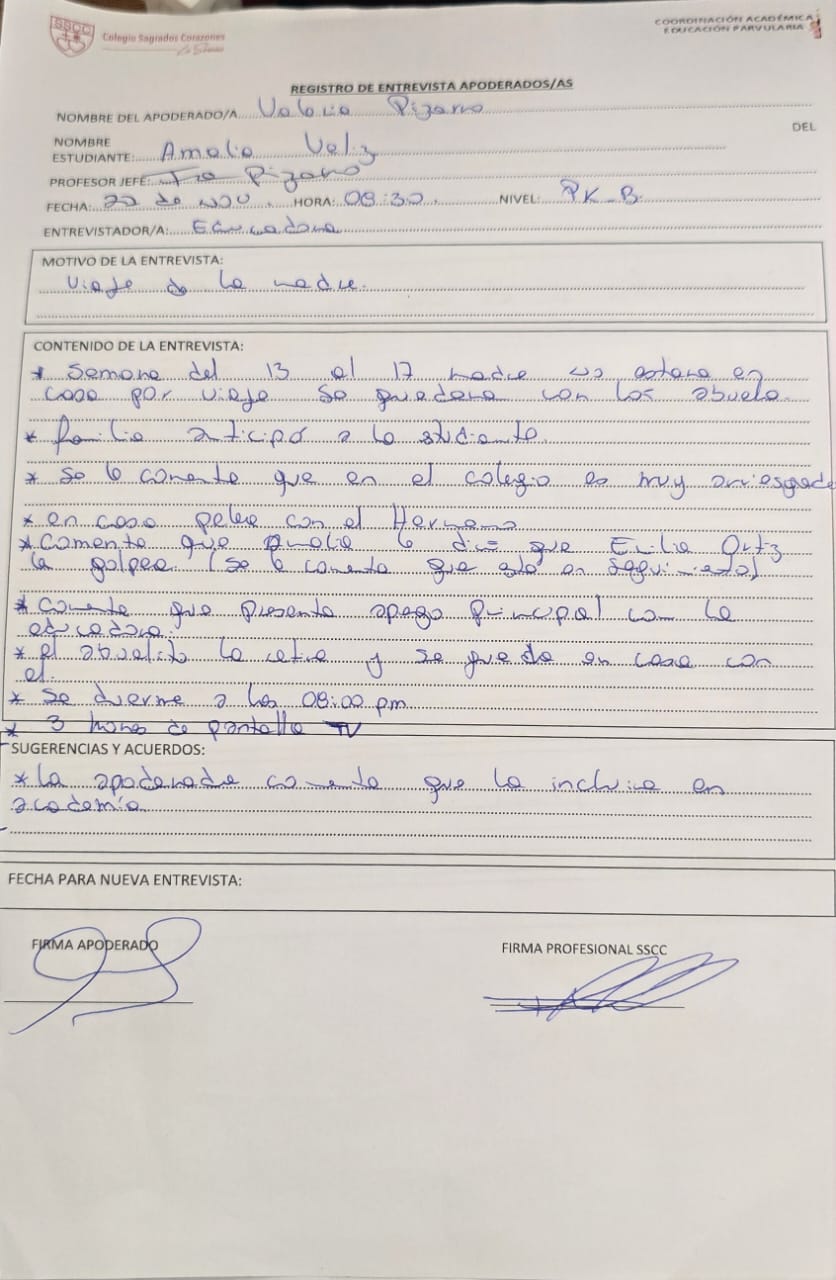 SSCC
Colegio Sagrados Corazones
La Serena
COORDINACIÓN ACADÉMICA
EDUCACIÓN PARVULARIA
REGISTRO DE ENTREVISTA APODERADOS/AS
NOMBRE DEL APODERADO/A Valeria Pizarro
DEL
NOMBRE
ESTUDIANTE: Amalia Veliz
PROFESOR JEFE: Pizarro
FECHA: 22 de nov. HORA: 08:30. NIVEL: PK-B.
ENTREVISTADOR/A: Educadora
MOTIVO DE LA ENTREVISTA:
Viaje de la madre.
CONTENIDO DE LA ENTREVISTA:
* Semana del 13 al 17 madre no estara en
casa por viaje se quedara con los abuelo.
* familia anticipó a la estudiante.
* se le comenta que en el colegio es muy arriesgada
* en casa pelea con el Hermano
* Comenta que Amalia le dice que Emilia Ortiz
la golpea (se le comenta que está en seguimiento)
* Comenta que presenta apego principal con la
educadora.
* el abuelito la retira y se queda en casa con
el.
* se duerme a las 08:00 pm
* 3 horas de pantalla TV
SUGERENCIAS Y ACUERDOS:
* la apoderada comenta que la incluira en
academia
FECHA PARA NUEVA ENTREVISTA:
FIRMA APODERADO
FIRMA PROFESIONAL SSCC